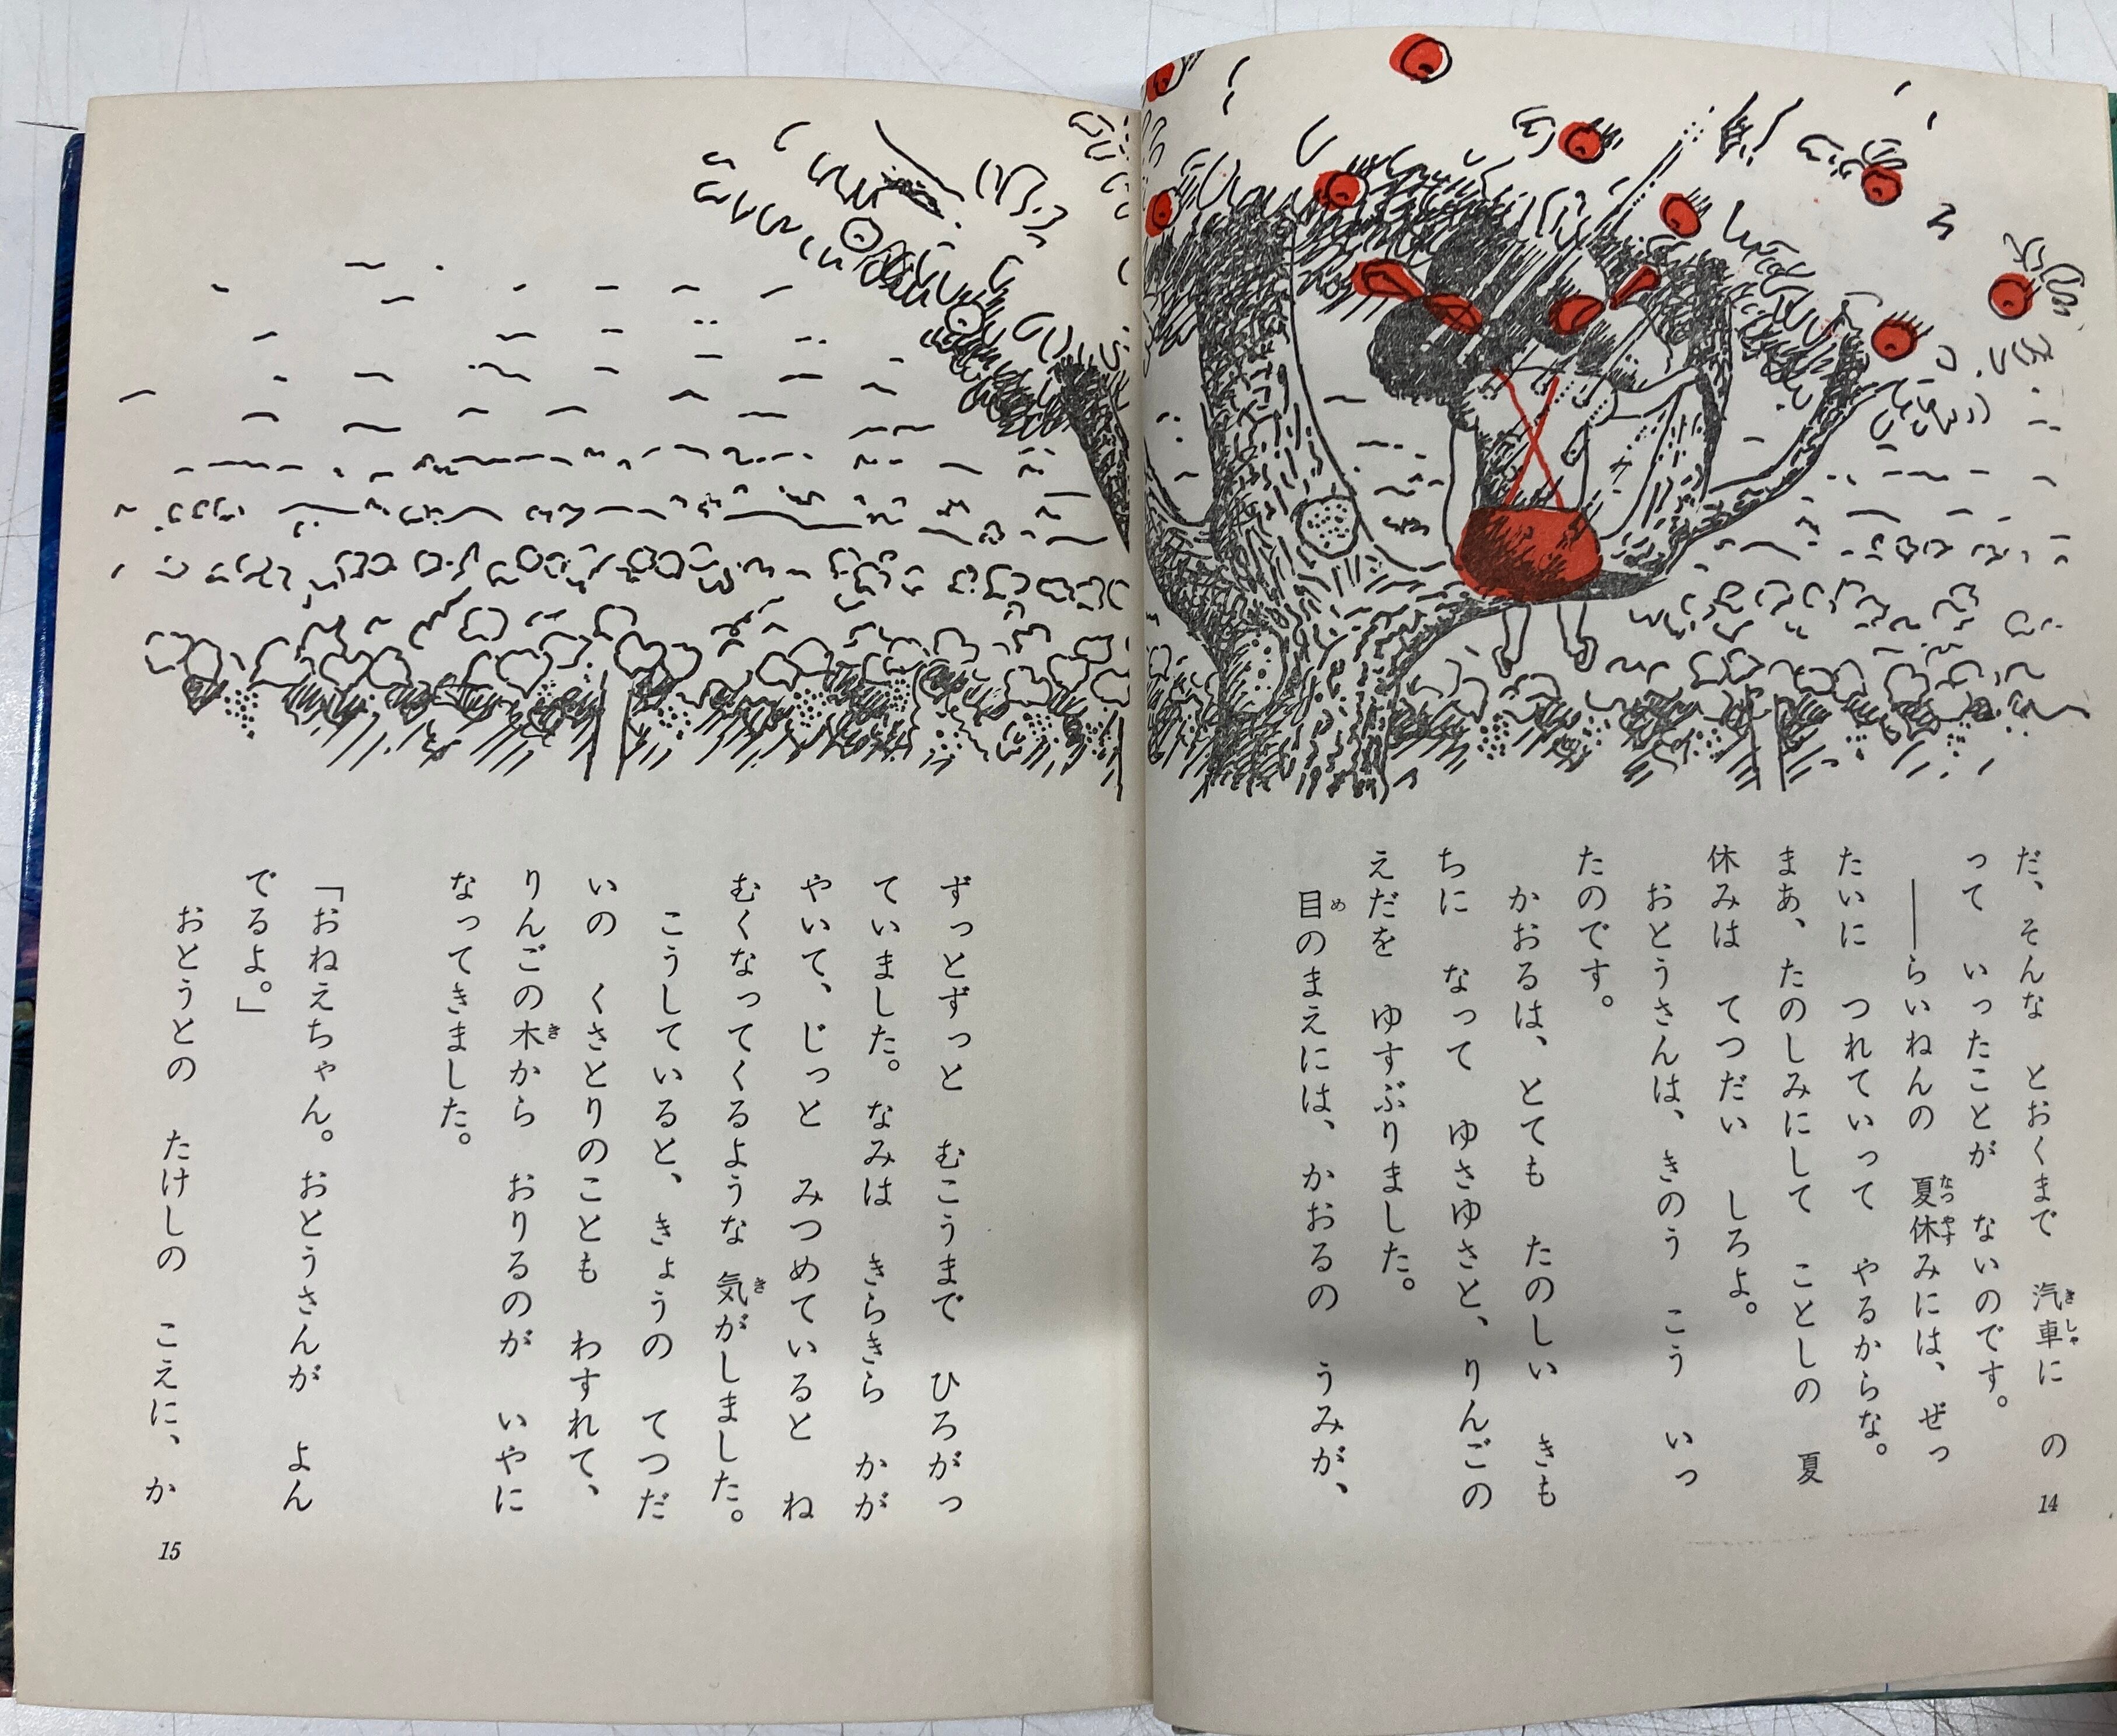 だ、そんな　とおくまで　汽車に　の
って　いったことが　ないのです。
――らいねんの　夏休みには、ぜっ
たいに　つれていって　やるからな。
まあ、たのしみにして　ことしの　夏
休みは　てつだい　しろよ。
おとうさんは、きのう　こう　いっ
たのです。
かおるは、とても　たのしい　きも
ちに　なって　ゆさゆさと、りんごの
えだを　ゆすぶりました。
目のまえには、かおるの　うみが、
14
ずっとずっと　むこうまで　ひろがっ
ていました。なみは　きらきら　かが
やいて、じっと　みつめていると　ね
むくなってくるような　気がしました。
こうしていると、きょうの　てつだ
いの　くさとりのことも　わすれて、
りんごの木から　おりるのが　いやに
なってきました。
「おねえちゃん。おとうさんが　よん
でるよ。」
おとうとの　たけしの　こえに、か
15